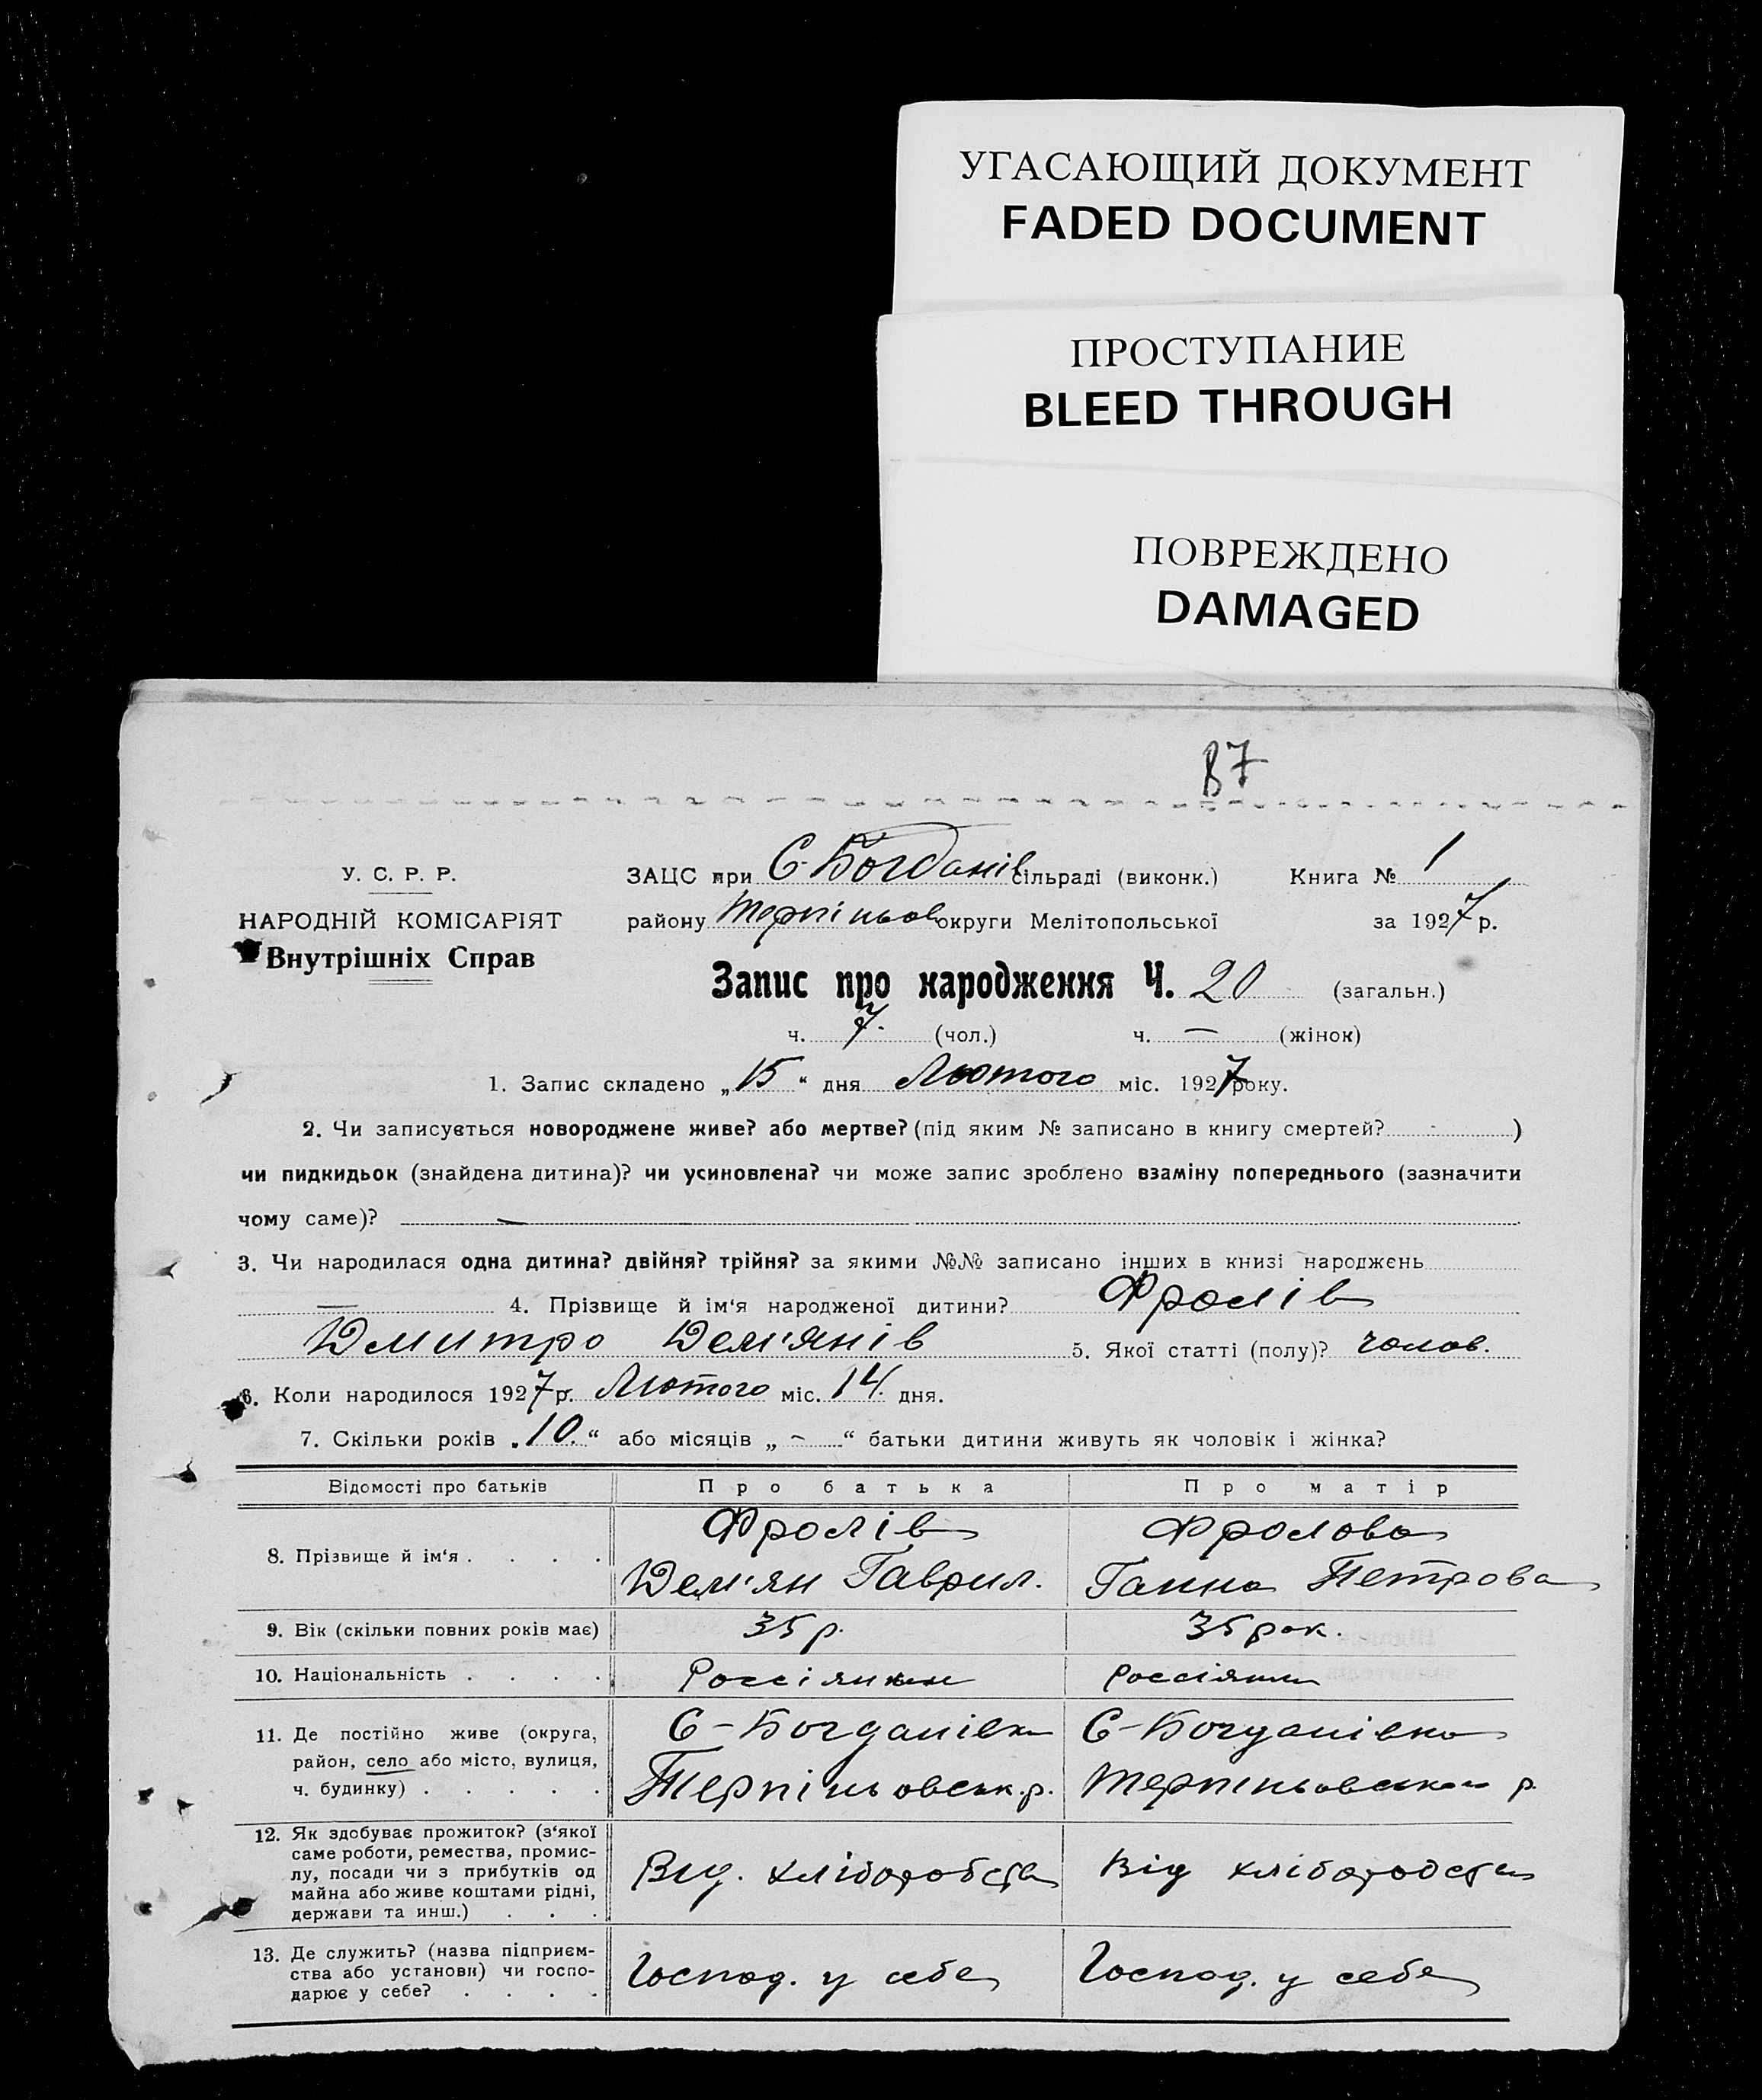 УГАСАЮЩИЙ ДОКУМЕНТ
FADED DOCUMENT
ПРОСТУПАНИЕ
BLEED THROUGH
ПОВРЕЖДЕНО
DAMAGED
87
У. С. Р. Р.
НАРОДНІЙ КОМІСАРІЯТ
Внутрішніх Справ
ЗАЦС при С-Богданів сільраді (виконк.) Книга № 1
району Терпіньов округи Мелітопольської за 1927 р.
Запис про народження Ч. 20 (загальн.)
ч. 7. (чол.) ч. — (жінок)
1. Запис складено „15“ дня Лютого міс. 1927 року.
2. Чи записується новороджене живе? або мертве? (під яким № записано в книгу смертей? - )
чи пидкидьок (знайдена дитина)? чи усиновлена? чи може запис зроблено взаміну попереднього (зазначити
чому саме)? —
3. Чи народилася одна дитина? двійня? трійня? за якими №№ записано інших в книзі народжень
— 4. Прізвище й ім‘я народженої дитини? Фролів
Дмитро Дем'янів 5. Якої статті (полу)? чолов.
6. Коли народилося 1927 р. Лютого міс. 14. дня.
7. Скільки років „10.“ або місяців „ - “ батьки дитини живуть як чоловік і жінка?
Відомості про батьків Про батька Про матір
8. Прізвище й ім‘я . . . . Фролів Фролова
Дем'ян Гаврил. Ганна Петрова
9. Вік (скільки повних років має) 35 р. 35 рок.
10. Національність . . . . Россіянин Россіянка
11. Де постійно живе (округа, С-Богданівка С-Богданівка
район, село або місто, вулиця,
ч. будинку) . . . . . Терпіньовськ. р. Терпіньовськ р.
12. Як здобуває прожиток? (з‘якої
саме роботи, ремества, промис-
лу, посади чи з прибутків од Від. хліборобства Від хліборобства
майна або живе коштами рідні,
держави та инш.) . . .
13. Де служить? (назва підприєм-
ства або установи) чи госпо- Господ. у себе Господ. у себе
дарює у себе? . . . .